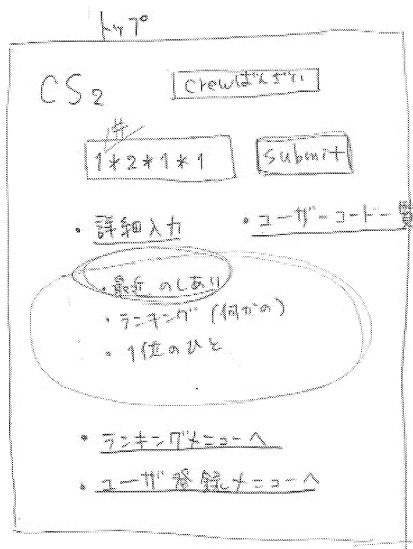 トップ
CS2
Crewばんざい
1*2*1*1
Submit
・詳細入力
・ユーザーコード一覧
・最近のしあい
・ランキング(何かの)
・1位のひと
・ランキングメニューへ
・ユーザ登録メニューへ